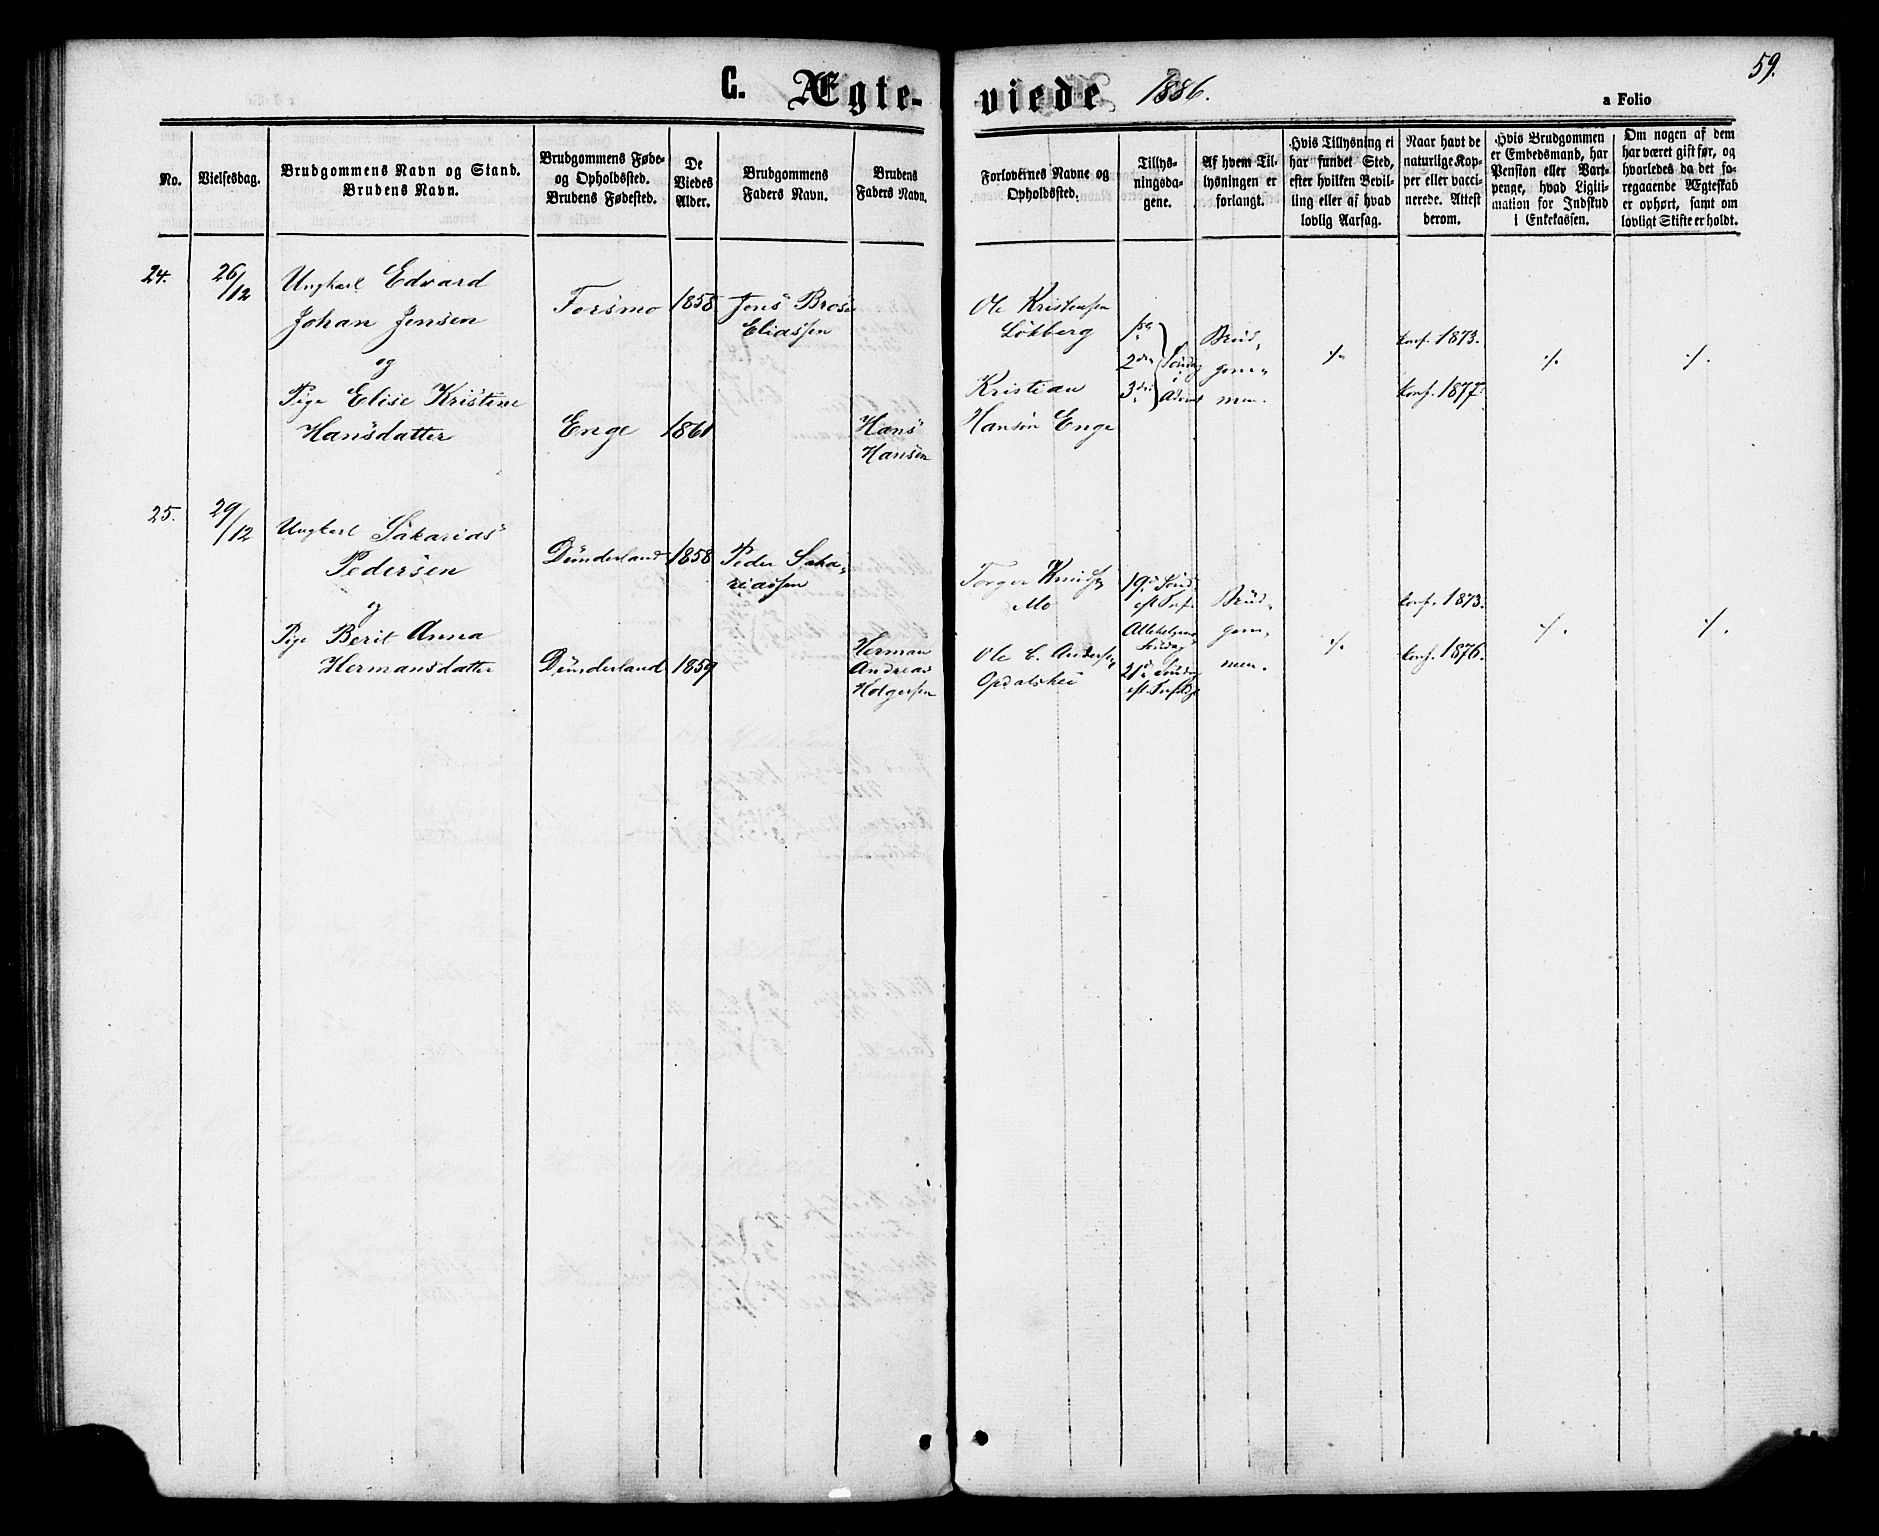 59.
C. Ægte-viede 1886.
a Folio
No.
Vielsesdag.
Brudgommens Navn og Stand.
Brudens Navn.
Brudgommens Føde-
og Opholdssted.
Brudens Fødested.
De
Viedes
Alder.
Brudgommens
Faders Navn.
Brudens
Faders Navn.
Forlovernes Navne og
Opholdssted.
Tillys-
ningsda-
gene.
Af hvem Til-
lysningen er
forlangt.
Hvis Tillysning ei
har fundet Sted,
efter hvilken Bevil-
ling eller af hvad
lovlig Aarsag.
Naar havt de
naturlige Kop-
per eller vacci-
nerede. Attest
derom.
Hvis Brudgommen
er Embedsmand, har
Pension eller Vart-
penge, hvad Ligiti-
mation for Indskud
i Enkekassen.
Om nogen af dem
har været gift før, og
hvorledes da det fo-
regaaende Ægteskab
er ophørt, samt om
lovligt Skifte er holdt.
24.
26/12
Ungkarl Edvard
Johan Jensen
og
Pige Elise Kristine
Hansdatter
Forsmo
Enge
1858
1861
Jens Brose
Eliassen
Hans
Hansen
Ole Kristensen
Løkberg
Kristian
Hansen Enge
1ste
2den
3die
Søndag
i
Advent
Brud-
gom-
men.
./.
Conf. 1873.
Conf. 1877.
./.
./.
25.
29/12
Ungkarl Sakarias
Pedersen
og
Pige Berit Anna
Hermansdatter
Dunderland
Dunderland
1858
1859
Peder Saka-
riassen
Herman
Andreas
Holgersen
Torger Knuds.
Mo
Ole C. Anders.
Opdalshei
19d Sønd.
eft. Tref.
Allehelgens
Søndag
21d Søndag
eft. Trefdgt
Brud-
gom-
men.
./.
Conf. 1873.
Conf. 1876.
./.
./.